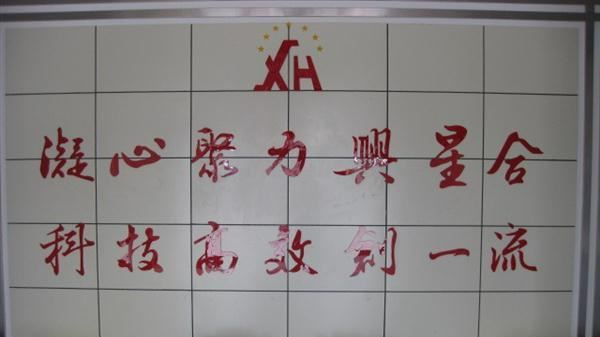 XH
凝心聚力興星合
科技高效创一流